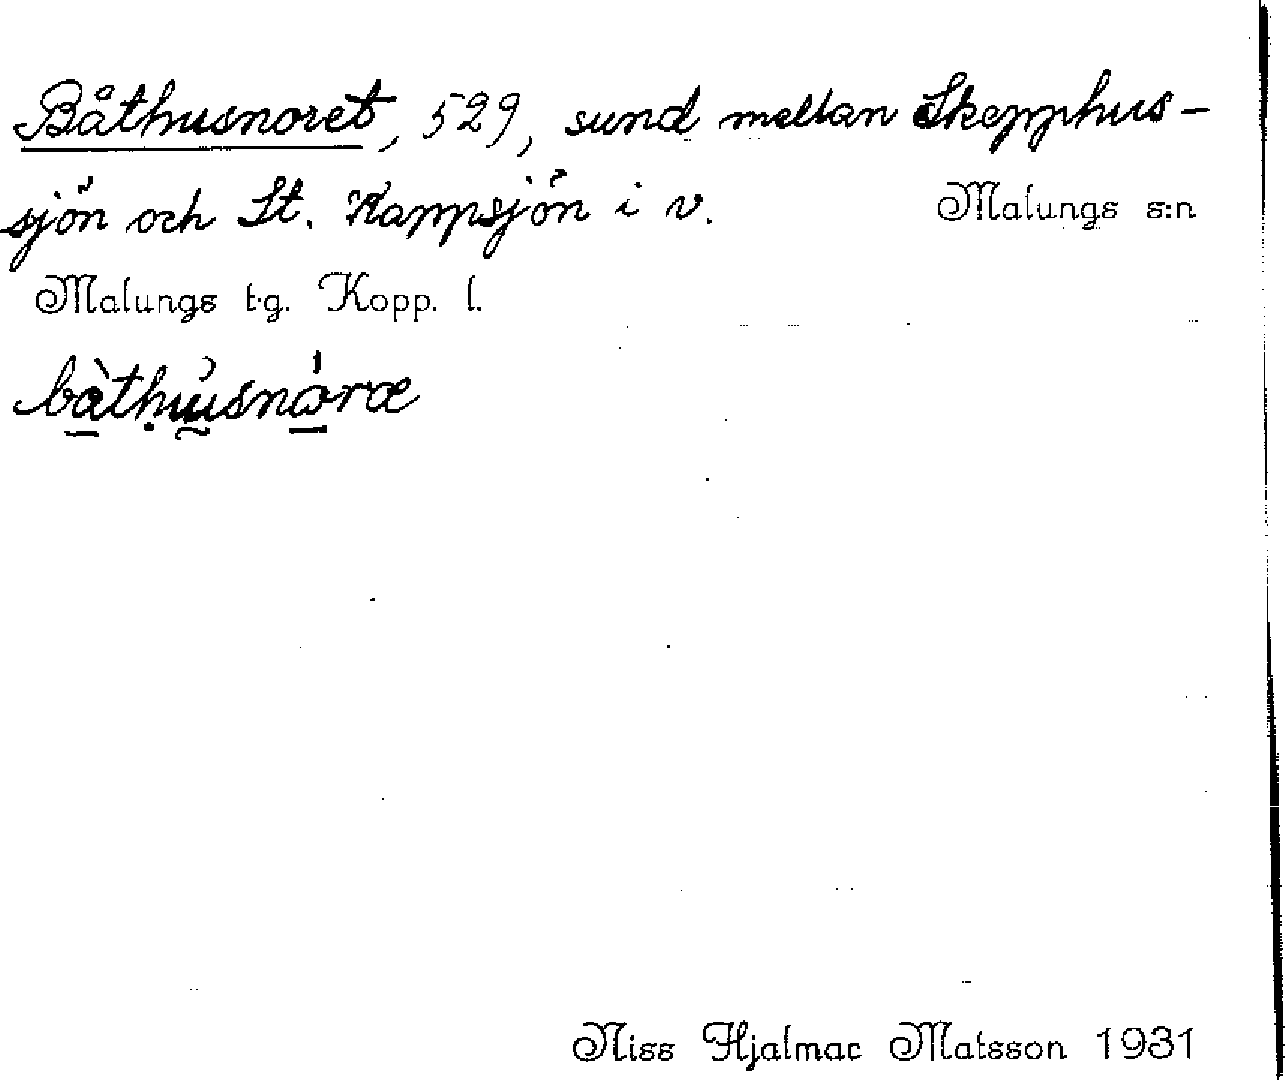 Båthusnoret, 529, sund mellan Skepphus-
sjön och St. Kappsjön i v.
Malungs s:n
Malungs t.g. Kopp. l.
bàthusnáræ
Niss Hjalmar Matsson 1931